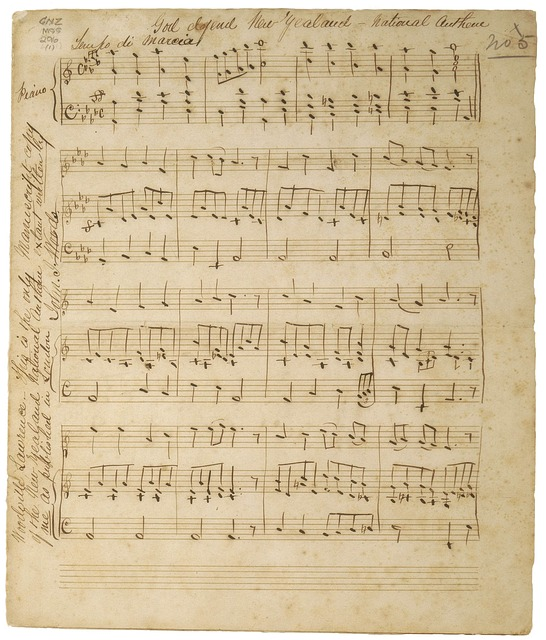 GNZ
MSS
God defend New Zealand – National Anthem
Tempo di marcia
No. 5
Piano
Woodville Lawrence – This is the only manuscript copy
of the New Zealand National Anthem extant written by
me as published in London